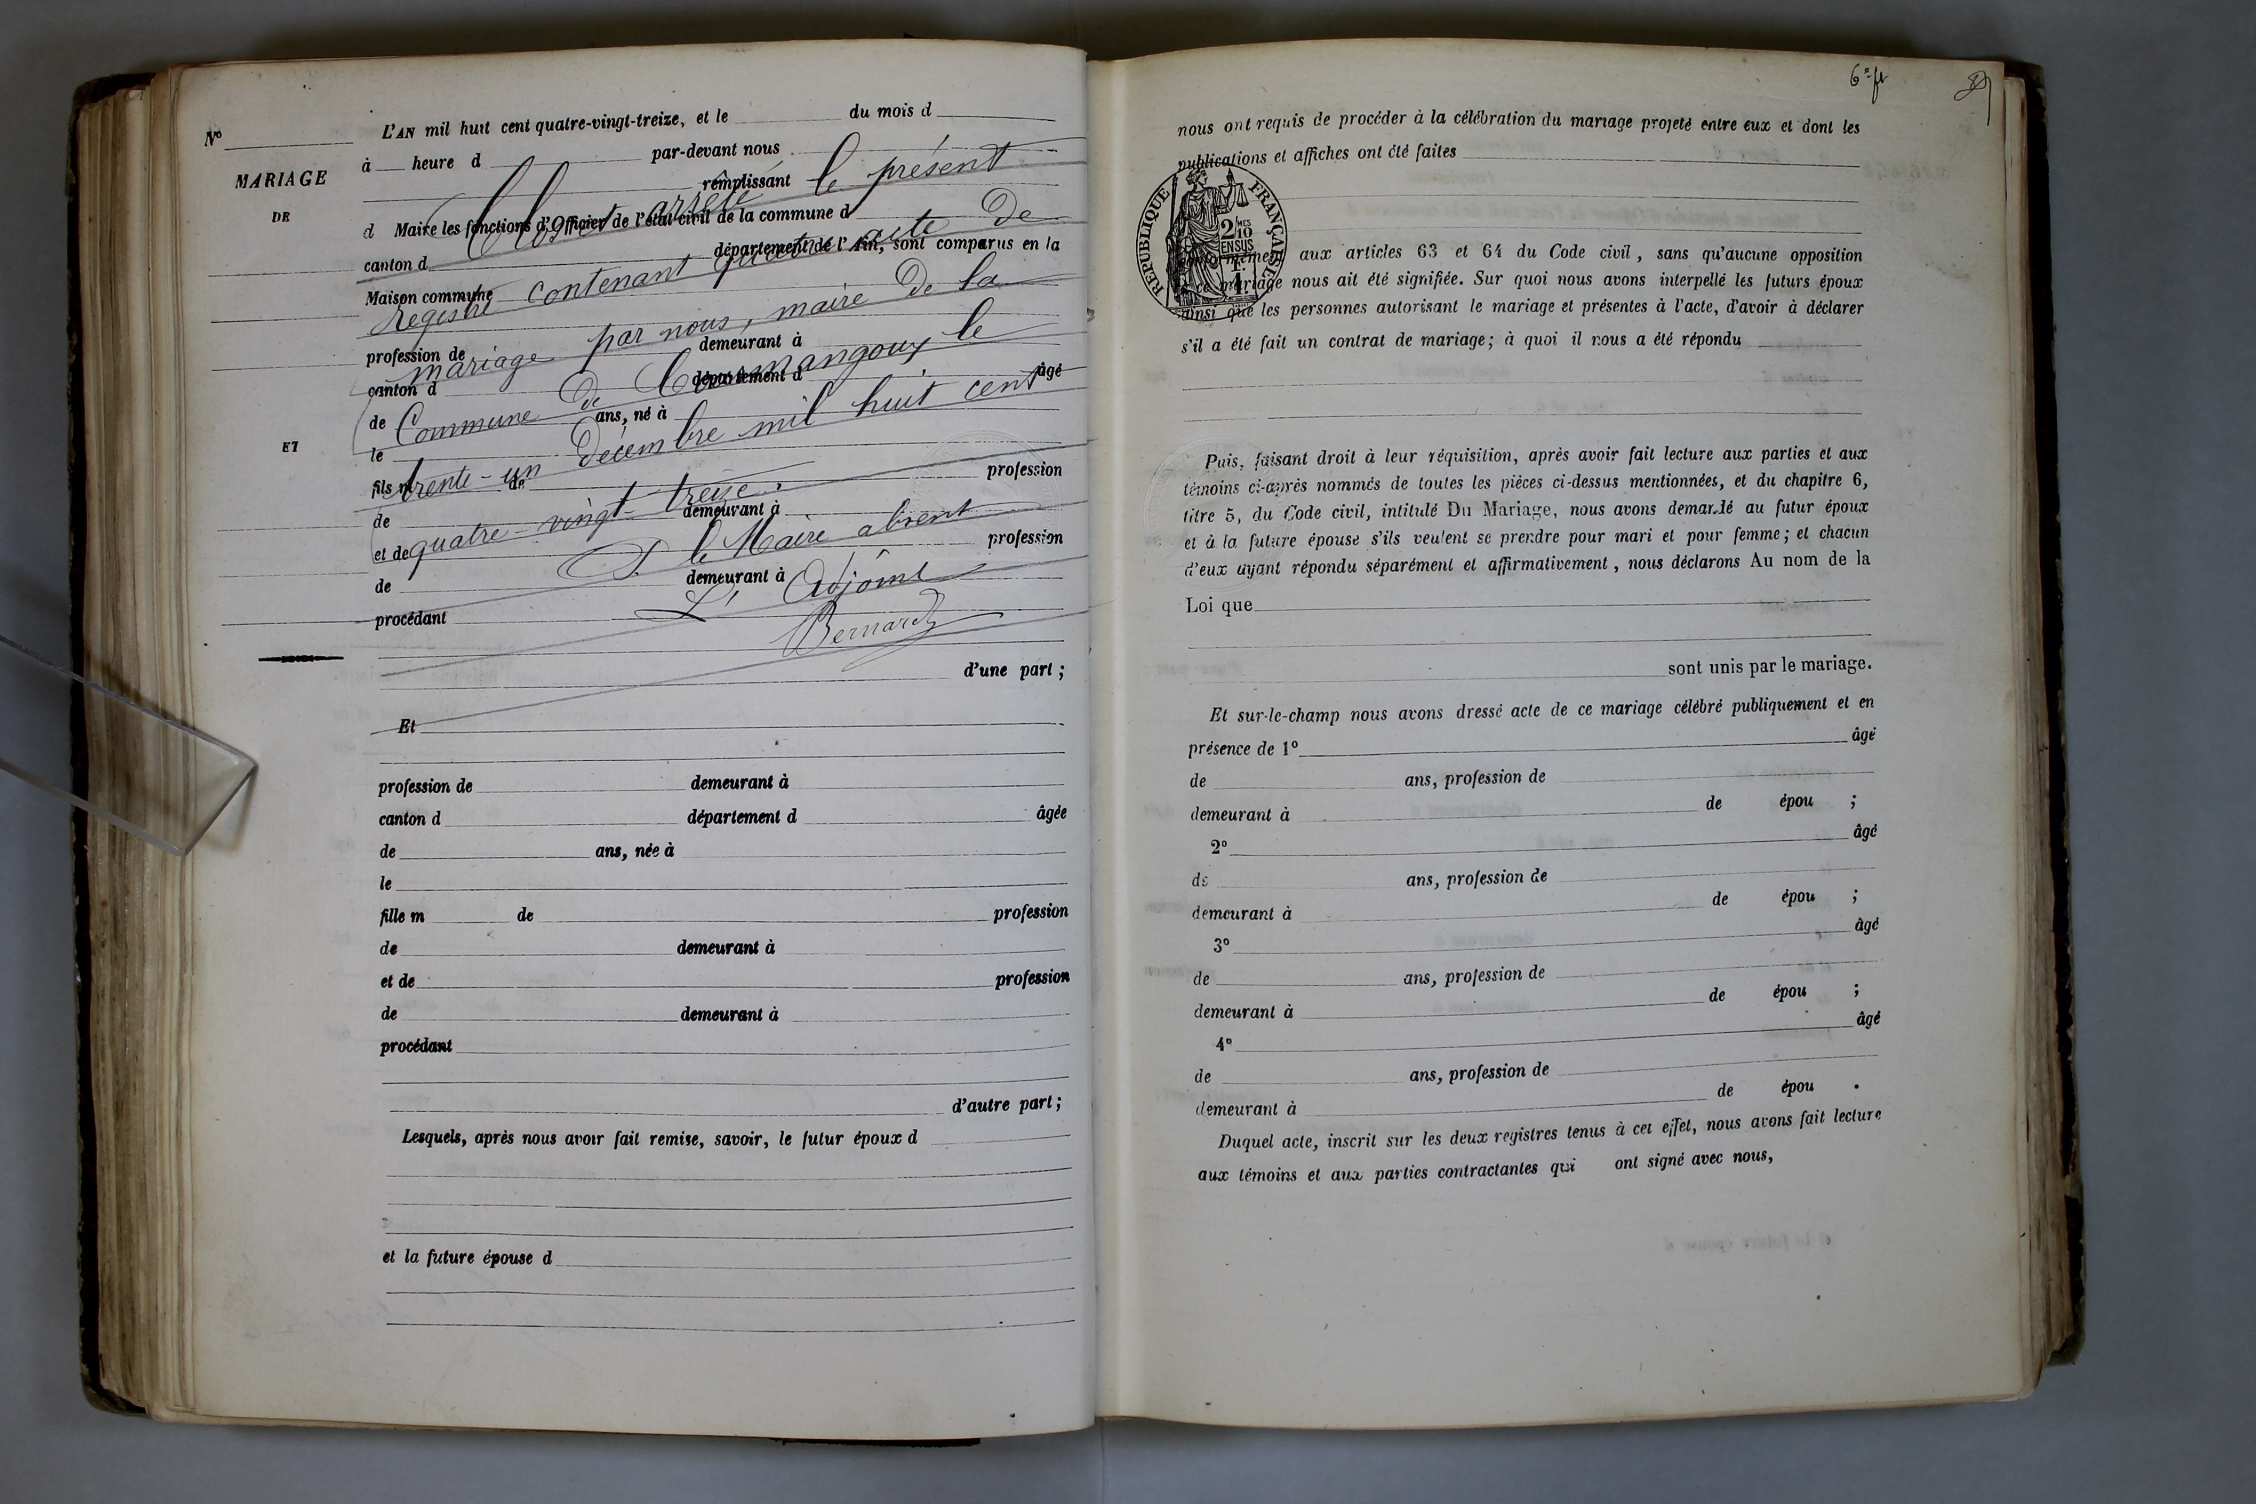 N°
MARIAGE
DE
ET
L'AN mil huit cent quatre-vingt-treize, et le du mois d
à heure d par-devant nous
remplissant
d Maire les fonctions d'Officier de l'état civil de la commune d
canton d département de l'Ain, sont comparus en la
Maison commune
profession de demeurant à
canton d département d âgé
de ans, né à
le
fils m de profession
de demeurant à
et de profession
de demeurant à
procédant
d'une part ;
Clos et arrêté le présent
Registre contenant quatre acte De
mariage par nous, maire De la
Commune De Courmangoux le
trente-un Décembre mil huit cent
quatre-vingt treize.
P. le Maire absent
L'Adjoint
Bernard
Et
profession de demeurant à
canton d département d âgée
de ans, née à
le
fille m de profession
de demeurant à
et de profession
de demeurant à
procédant
d'autre part ;
Lesquels, après nous avoir fait remise, savoir, le futur époux d
et la future épouse d
6e ft
nous ont requis de procéder à la célébration du mariage projeté entre eux et dont les
publications et affiches ont été faites
RÉPUBLIQUE FRANÇAISE
2/10 EN SUS
aux articles 63 et 64 du Code civil, sans qu'aucune opposition
mariage nous ait été signifiée. Sur quoi nous avons interpellé les futurs époux
ainsi que les personnes autorisant le mariage et présentes à l'acte, d'avoir à déclarer
s'il a été fait un contrat de mariage ; à quoi il nous a été répondu
Puis, faisant droit à leur réquisition, après avoir fait lecture aux parties et aux
témoins ci-après nommés de toutes les pièces ci-dessus mentionnées, et du chapitre 6,
titre 5, du Code civil, intitulé Du Mariage, nous avons demandé au futur époux
et à la future épouse s'ils veulent se prendre pour mari et pour femme ; et chacun
d'eux ayant répondu séparément et affirmativement, nous déclarons Au nom de la
Loi que
sont unis par le mariage.
Et sur-le-champ nous avons dressé acte de ce mariage célébré publiquement et en
présence de 1° âgé
de ans, profession de
demeurant à de épou ;
2° âgé
de ans, profession de
demeurant à de épou ;
3° âgé
de ans, profession de
demeurant à de épou ;
4° âgé
de ans, profession de
demeurant à de épou .
Duquel acte, inscrit sur les deux registres tenus à cet effet, nous avons fait lecture
aux témoins et aux parties contractantes qui ont signé avec nous,